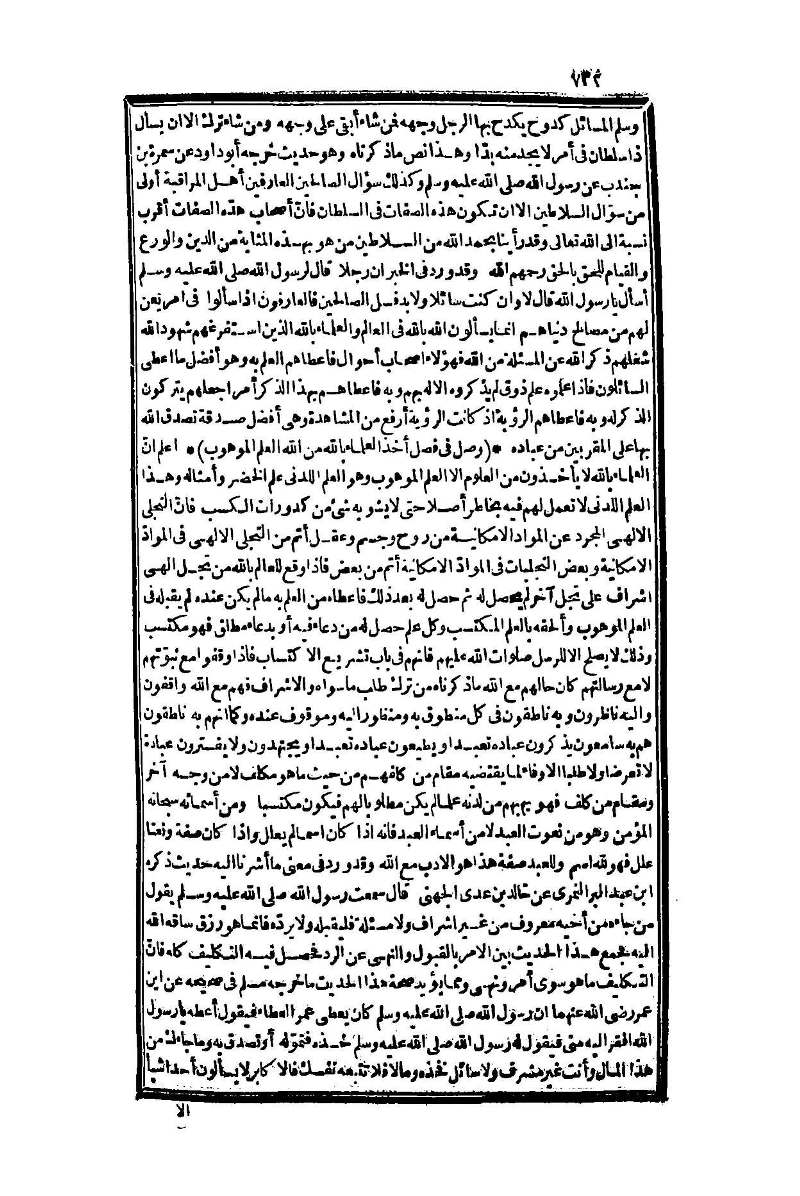 ٧٣٢
وسلم المسائل كدوح يكدح بها الرجل وجهه فن شاء أبقى على وجهه ومن شاء ترك الا ان يسأل
ذا سلطان فى أمر لا يجد منه بدّا وهذا نص ماذكرناه وهو حديث خرجه أبو داود عن سمرة بن
جندب عن رسول الله صلى الله عليه وسلم وكذلك سؤال الصالحين العارفين أهل المراقبة أولى
من سؤال السلاطين الا ان تكون هذه الصفات فى السلطان فانّ أصحاب هذه الصفات أقرب
نسبة الى الله تعالى وقد رأينا بحمد الله من السلاطين من هو بهذه المثابة من الدين والورع
والقيام للحق بالحق رحمهم الله وقد ورد فى الخبر ان رجلا قال لرسول الله صلى الله عليه وسلم
أسأل يارسول الله قال لا وان كنت سائلا ولا بد فسل الصالحين فالعارفون اذا سألوا فى امر تعن
لهم من مصالح دنياهم انما يسألون الله بالله فى العالم والعلماء بالله الذين استفرغهم شهود الله
شغلهم ذكر الله عن المسئلة من الله فهؤلاء اصحاب أحوال فاعطاهم العلم به وهو أفضل ما اعطى
السائلون فاذا علموه علم ذوق لم يذكروه الا له بهم وبه فاعطاهم بهذا الذكر أمرا جعلهم يتركون
الذكر له وبه فاعطاهم الرؤية اذ كانت الرؤية أرفع من المشاهدة وهى أفضل صدقة تصدق الله
بها على المقربين من عباده *(وصل فى فصل أخذ العلماء بالله من الله العلم الموهوب)* اعلم انّ
العلماء بالله لا يأخذون من العلوم الا العلم الموهوب وهو العلم اللدنى علم الخضر وأمثاله وهذا
العلم اللدنى لا تعمل لهم فيه بخاطر أصلا حتى لا يشوبه شئ من كدورات الكسب فانّ التجلى
الالهى المجرد عن المواد الامكانية من روح وجسم وعقل أتم من التجلى الالهى فى الموادّ
الامكانية وبعض التجليات فى الموادّ الامكانية أتم من بعض فاذا وقع للعالم بالله من تجل الهى
اشراف على تجل آخر لم يحصل له ثم حصل له بعد ذلك فاعطاه من العلم به مالم يكن عنده لم يقبله فى
العلم الموهوب وألحقه بالعلم المكتسب وكل علم حصل له من دعاء فيه أو بدعاء مطلق فهو مكتسب
وذلك لا يصلح الا للرسل صلوات الله عليهم فانهم فى باب تشريع الاكتساب فاذا وقفوا مع نبوّتهم
لا مع رسالتهم كان حالهم مع الله ماذكرناه من ترك طلب ماسواه والاشراف فهم مع الله واقفون
واليه ناظرون وبه ناطقون فى كل منطوق به ومنظور اليه وموقوف عنده وكما انهم به ناطقون
هم به سامعون يذكرون عباده تعبدا ويطيعون عباده تعبدا ويجتهدون ولا يفترون عبادة
لا تعرضا ولا طلبا الا وفاء لما يقتضيه مقام من كلفهم من حيث ما هو مكلف لا من وجه آخر
ومقام من كلف فهو يهبهم من لدنه علما لم يكن مطلوبا لهم فيكون مكتسبا ومن أسمائه سبحانه
المؤمن وهو من نعوت العبد لا من أسماء العبد فانه اذا كان اسما لم يعلل واذا كان صفة ونعتا
علل فهو لله اسم وللعبد صفة هذا هو الادب مع الله وقد ورد فى معنى ما أشرنا اليه حديث ذكره
ابن عبد البر النمرى عن خالد بن عدى الجهنى قال سمعت رسول الله صلى الله عليه وسلم يقول
من جاءه من أخيه معروف من غير اشراف ولا مسئلة فليقبله ولا يردّه فانما هو رزق ساقه الله
اليه فجمع هذا الحديث بين الامر بالقبول والنهى عن الرد فحصل فيه التكليف كله فانّ
التكليف ما هو سوى أمر ونهى ومما يؤيد صحة هذا الحديث ماخرجه مسلم فى صحيحه عن ابن
عمر رضى الله عنهما ان رسول الله صلى الله عليه وسلم كان يعطى عمر العطاء فيقول أعطه يارسول
الله افقر اليه منى فيقول له رسول الله صلى الله عليه وسلم خذه فتموّله أو تصدق به وماجاءك من
هذا المال وأنت غير مشرف ولا سائل فخذه ومالا فلا تتبعه نفسك فالا كابر لا يسألون أحدا شيأ
الا